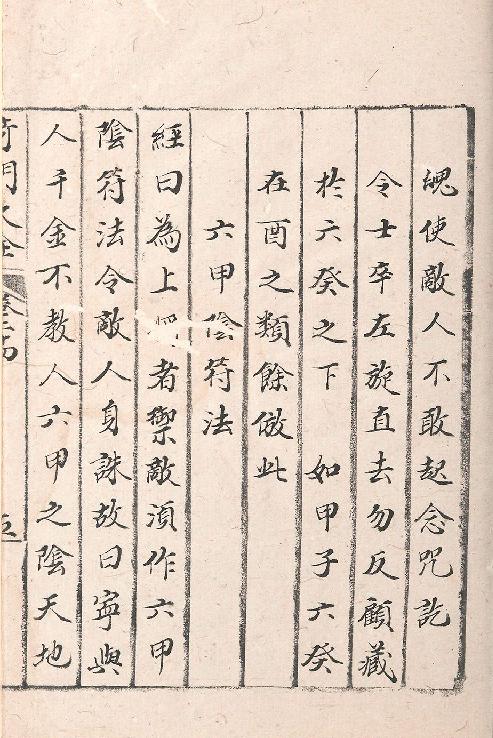 魂使敵人不敢起念咒訖
令士卒左旋直去勿反顧藏
於六癸之下 如甲子六癸
在酉之類餘倣此
六甲陰符法
經曰為上 者禦敵湏作六甲
陰符法令敵人身誅故曰寧與
人千金不教人六甲之陰天地
奇門大全 卷 五